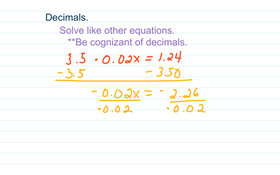 Decimals.
Solve like other equations.
**Be cognizant of decimals.
3.5 - 0.02x = 1.24
-3.5 - 3.50
- 0.02x = - 2.26
-0.02 -0.02